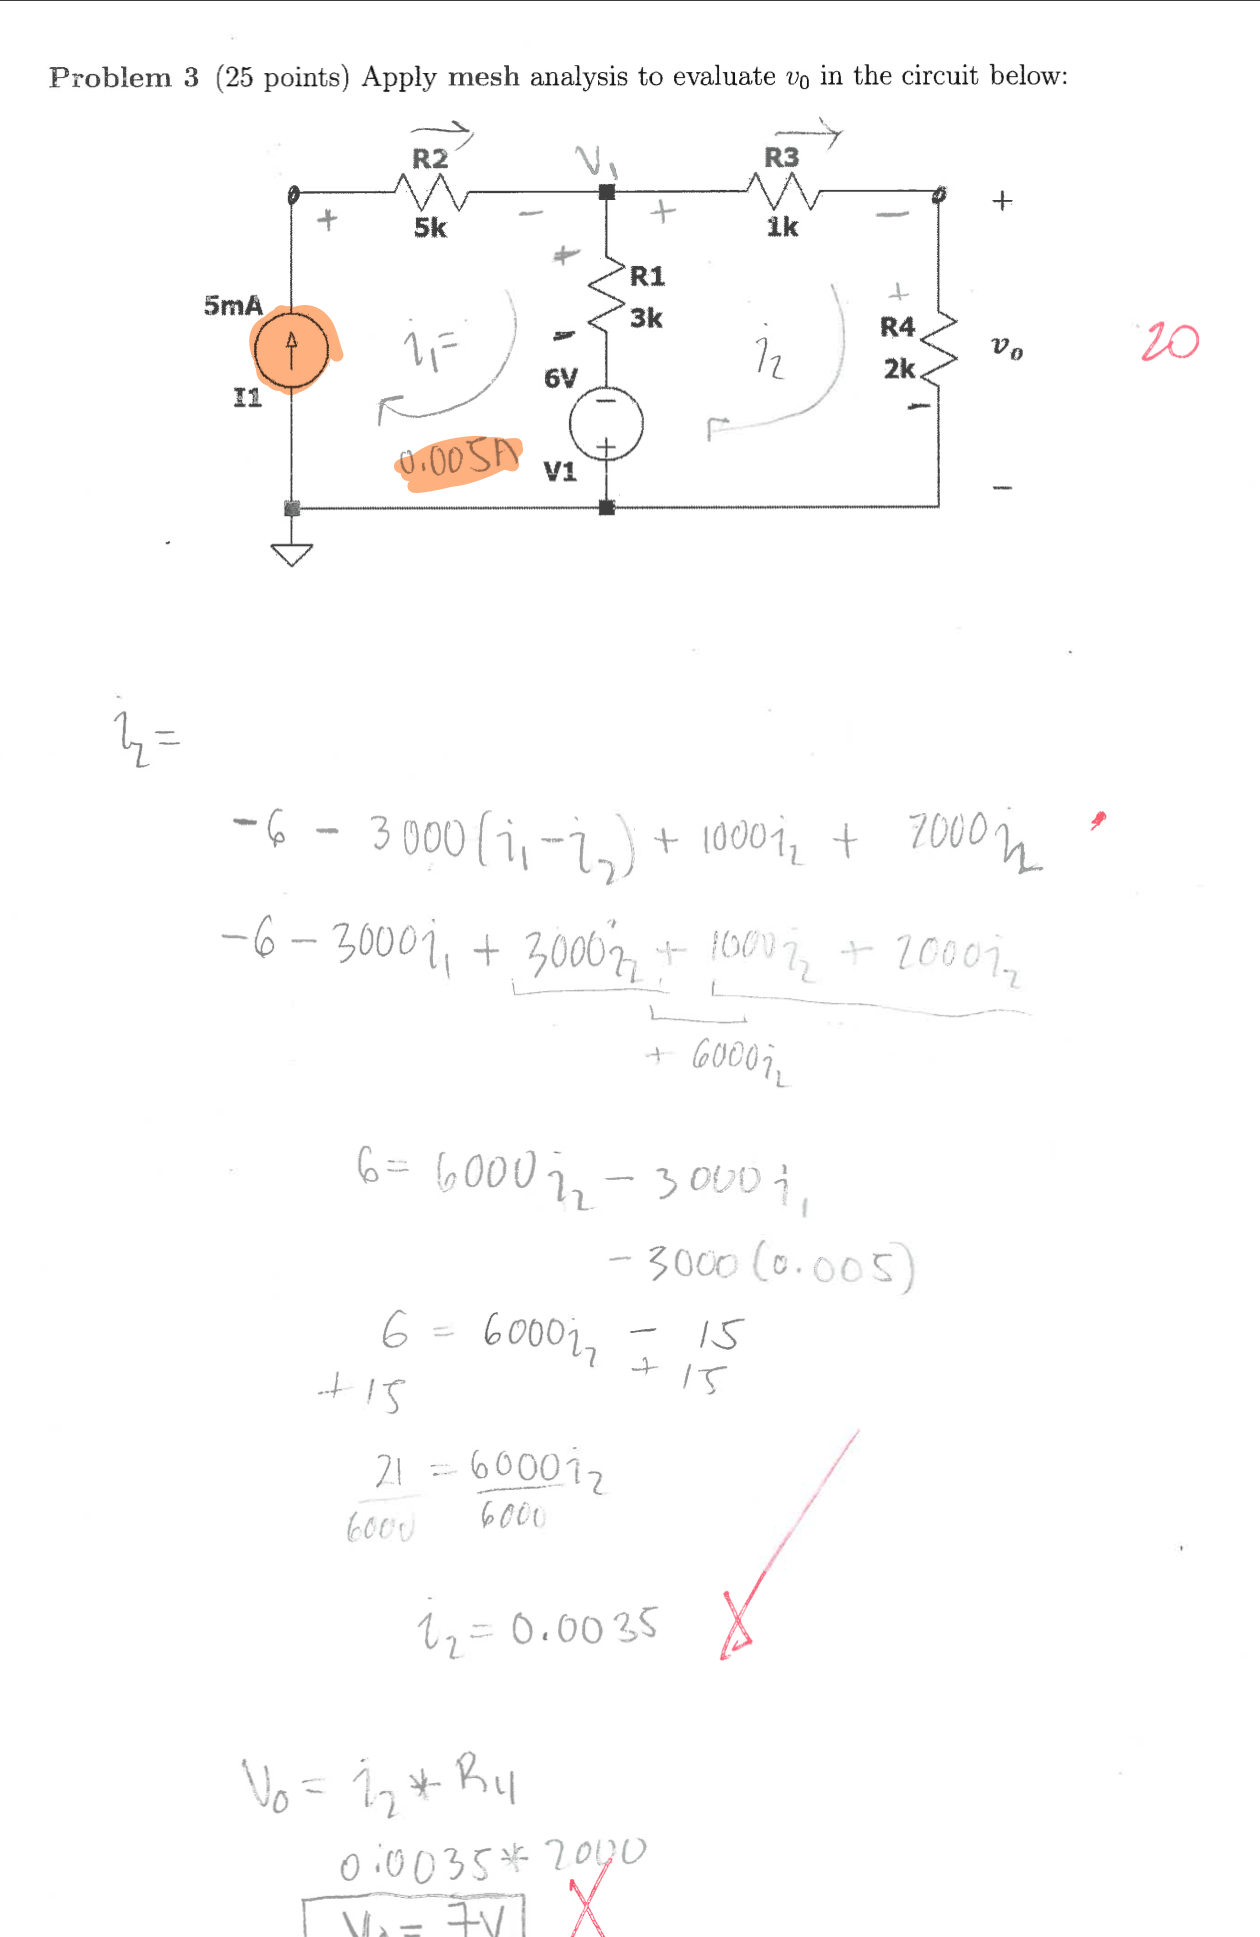 Problem 3 (25 points) Apply mesh analysis to evaluate v0 in the circuit below:
R2
V1
R3
+
5k
−
+
1k
−
+
+
R1
3k
−
5mA
I1
i1=
0.005A
6V
−
+
V1
i2
+
R4
2k
−
vo
−
20
i2=
-6 - 3000(i1-i2) + 1000i2 + 2000i2
-6 - 3000i1 + 3000i2 + 1000i2 + 2000i2
+ 6000i2
6 = 6000i2 - 3000i1
- 3000(0.005)
6 = 6000i2 - 15
+15 + 15
21 = 6000i2
6000 6000
i2 = 0.0035
V0 = i2 * R4
0.0035 * 2000
V0 = 7V